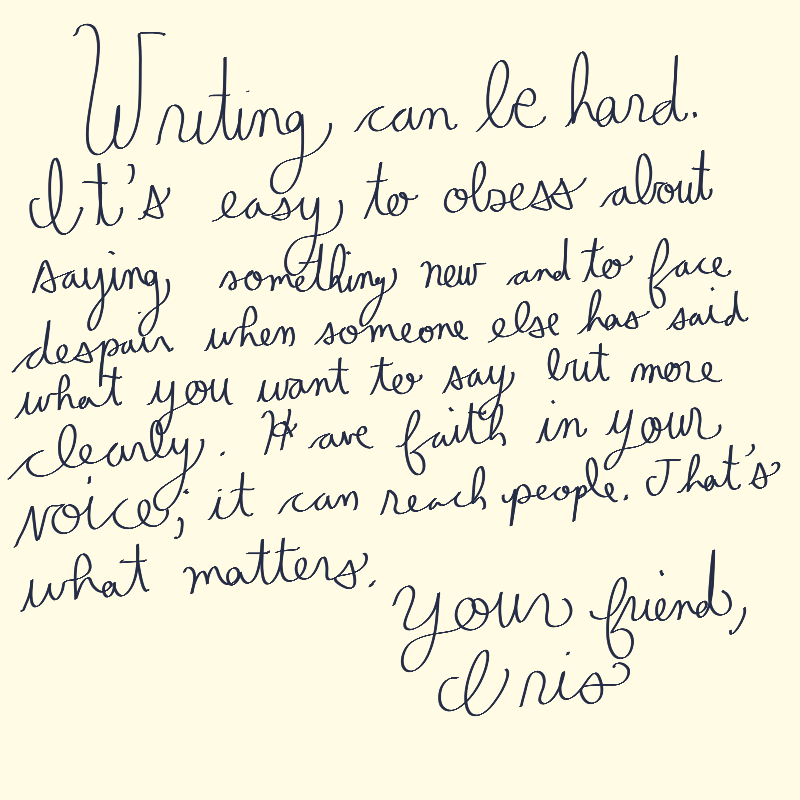 Writing can be hard.
It's easy to obsess about
saying something new and to face
despair when someone else has said
what you want to say but more
clearly. Have faith in your
voice; it can reach people. That's
what matters.
Your friend,
Iris